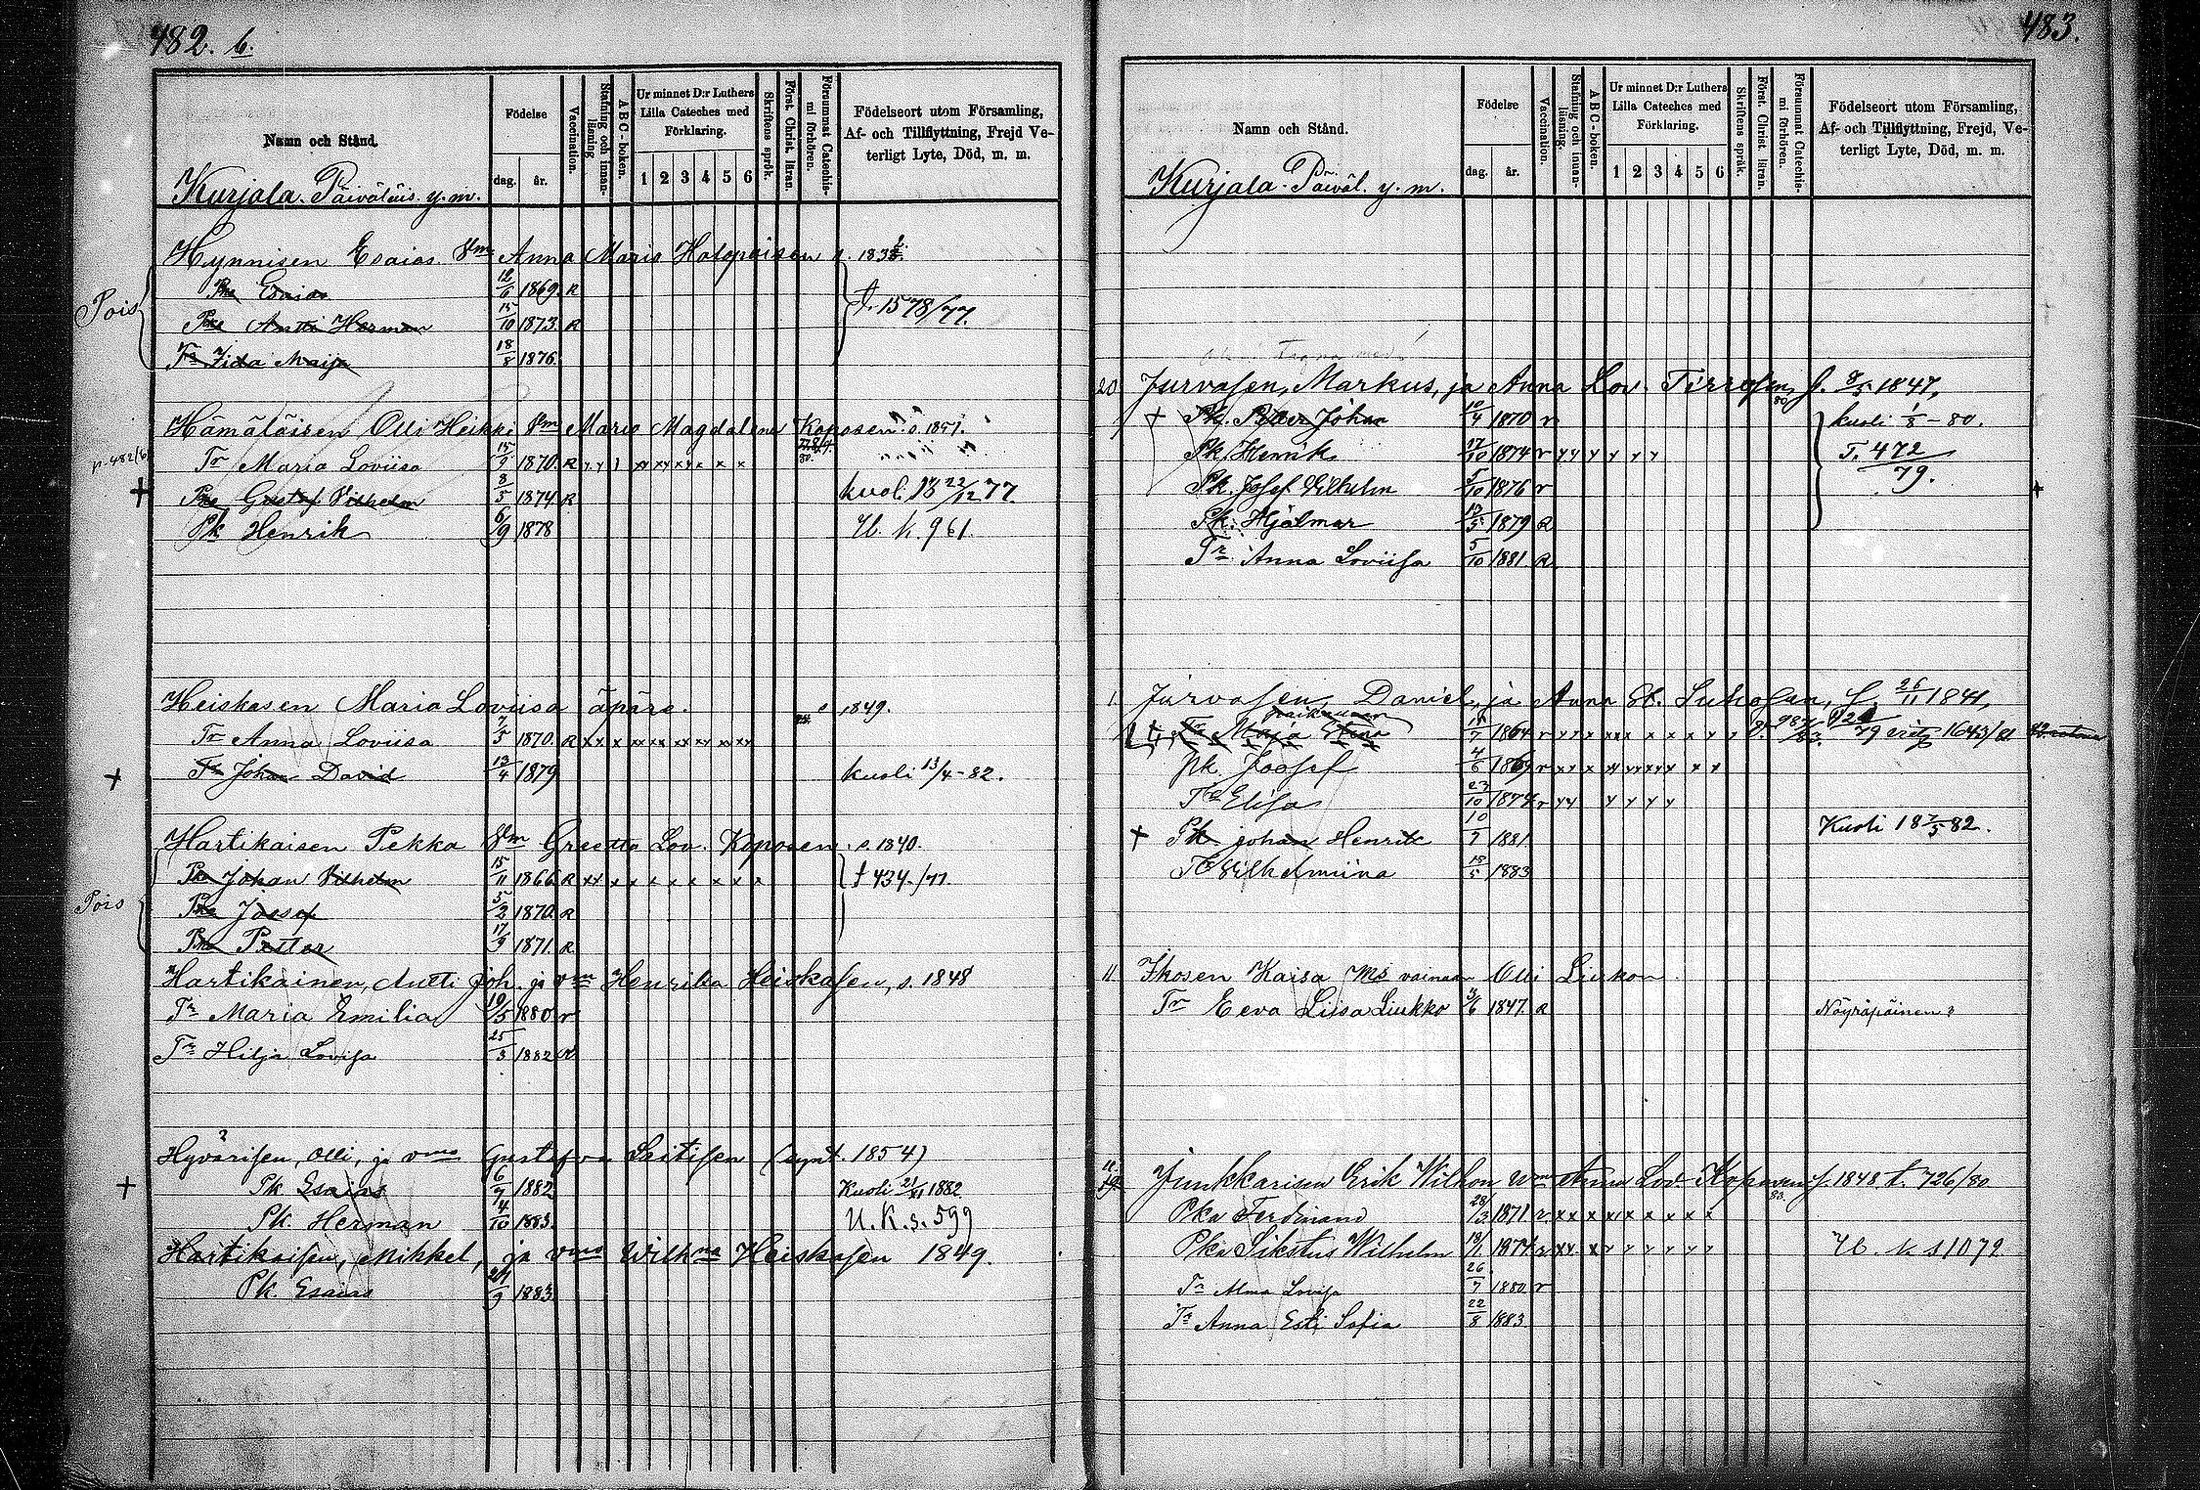 482. b.
Namn och Stånd.
Födelse
dag. år.
Vaccination.
Stafning och innan-läsning
ABC-boken.
Ur minnet D:r Luthers Lilla Cateches med Förklaring.
1 2 3 4 5 6
Skriftens språk.
Först. Christ. läran.
Försummat Catechis-mi förhören.
Födelseort utom Församling, Af- och Tillflyttning, Frejd Ve-terligt Lyte, Död, m. m.
Kurjala. Päiväläis. y. m.
Hynnisen Esaias Vm Anna Maria Holopaisen s. 183
Pois
Pka Esaias 12/6 1869. R
Pka Antti Herman 15/10 1873. R t. 1578/77.
Tr Iida Maija 18/8 1876.
Hämäläisen Olli Heikki Vm Maria Magdalena Koposen s. 1851.
Tr Maria Loviisa 15/9 1870. R
+ Pka Gustaf Vilhelm 8/5 1874 R kuoli 18 22/12 77.
Pk Henrik 6/9 1878 Ul. k. 961.
Heiskasen Maria Loviisa äpärä. 1849.
Tr Anna Loviisa 7/5 1870. R
+ Johan David 13/4 1879 kuoli 13/4-82.
Hartikaisen Pekka Vm Greetta Lov. Koposen. s. 1840.
Pois
Pka Johan Vilhelm 15/11 1866 R x x x x x x x x x t 434./77.
Pka Joosef 5/2 1870. R
Pka Petter 17/9 1871. R
Hartikainen, Antti Joh. ja vmo Henrika Heiskasen, s. 1848
Tr Maria Emilia 19/5 1880 r
Tr Hilja Lovisa 25/3 1882 R
Hyvärisen, Olli, ja vmo Gustafva Laitisen (synt. 1854)
+ Pk Esaias 6/7 1882 Kuoli 21/11 1882
Pk. Herman 4/10 1883. U. K. s. 599
Hartikaisen, Mikkel, ja vmo Wilhna Heiskasen 1849.
Pk. Esaias 24/9 1883.
483.
Namn och Stånd.
Födelse
dag. år.
Vaccination.
Stafning och innan-läsning.
ABC-boken.
Ur minnet D:r Luthers Lilla Cateches med Förklaring.
1 2 3 4 5 6
Skriftens språk.
Först. Christ. läran.
Försummat Catechis-mi förhören.
Födelseort utom Församling, Af- och Tillflyttning, Frejd, Ve-terligt Lyte, Död, m. m.
Kurjala. Päiväl. y. m.
20 Jurvasen, Markus, ja Anna Lov. Tirrosen, s. 1847,
+ Pk. Petter Johan 10/4 1870 r kuoli 1/8-80.
Pk. Henrik 17/10 1874 r T. 472/79.
Pk. Josef Wilhelm 5/10 1876 r
Pk. Hjalmar 13/5 1879 R
Tr Anna Loviisa 5/10 1881 R
Jurvasen, Daniel, ja Anna St. Suhosen, s. 26/11 1841,
Tr Maja Stina 1864 1643/81
Pk. Joosef 4/6 1869 r
Tr Elisa 23/10 1874 r
+ Pk Johan Henrik 10/9 1881 Kuoli 18 7/5 82.
Tr Wilhelmiina 18/5 1883
11 Ikosen Kaisa Ms vainaan Olli Liukon
Tr Eeva Liisa Liukko 3/6 1847. R Nöyräpäinen
Junkkarisen Erik Wilhon Wm Anna Lov Koposen s. 1848. t. 726/80
Pka Ferdinand 28/3 1871
Pka Sikstus Wilhelm 18/1 1874 Ul. k s 1079
Tr Alma Lovisa 26/7 1880. r
Tr Anna Esti Sofia 22/8 1883